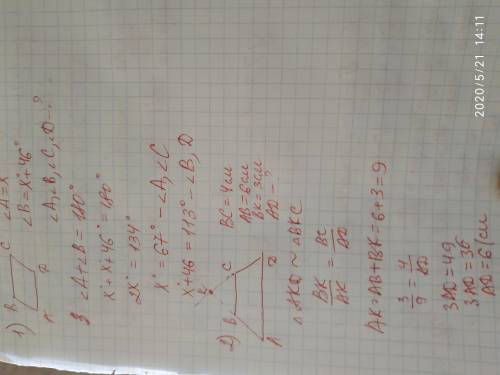 1) B C ∠A=X
A D ∠B=X+46°
∠A,∠B,∠C,∠D-?
∠A+∠B=180°
X+X+46°=180°
2X°=134°
X°=67°-∠A,∠C
X°+46=113°-∠B,D
2) B K C BC=4см
AB=6см
BK=3см
A D AD-?
△AKD~△BKC
BK/AK=BC/AD
AK=AB+BK=6+3=9
3/9=4/AD
3AD=49
3AD=36
AD=6/см
2020/5/21 14:11